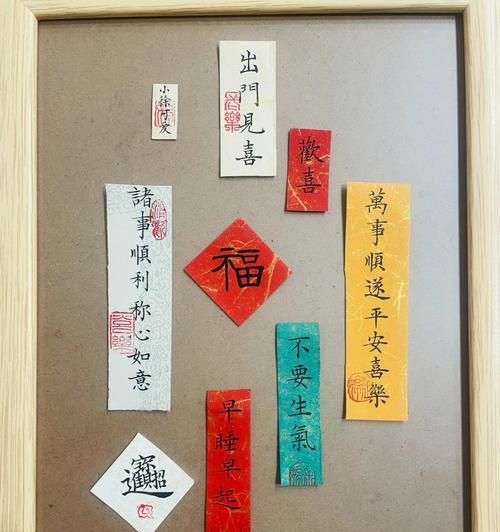 小徐可愛
出門見喜
歡喜
諸事順利称心如意
福
萬事順遂平安喜樂
不要生氣
早睡早起
招財進寶